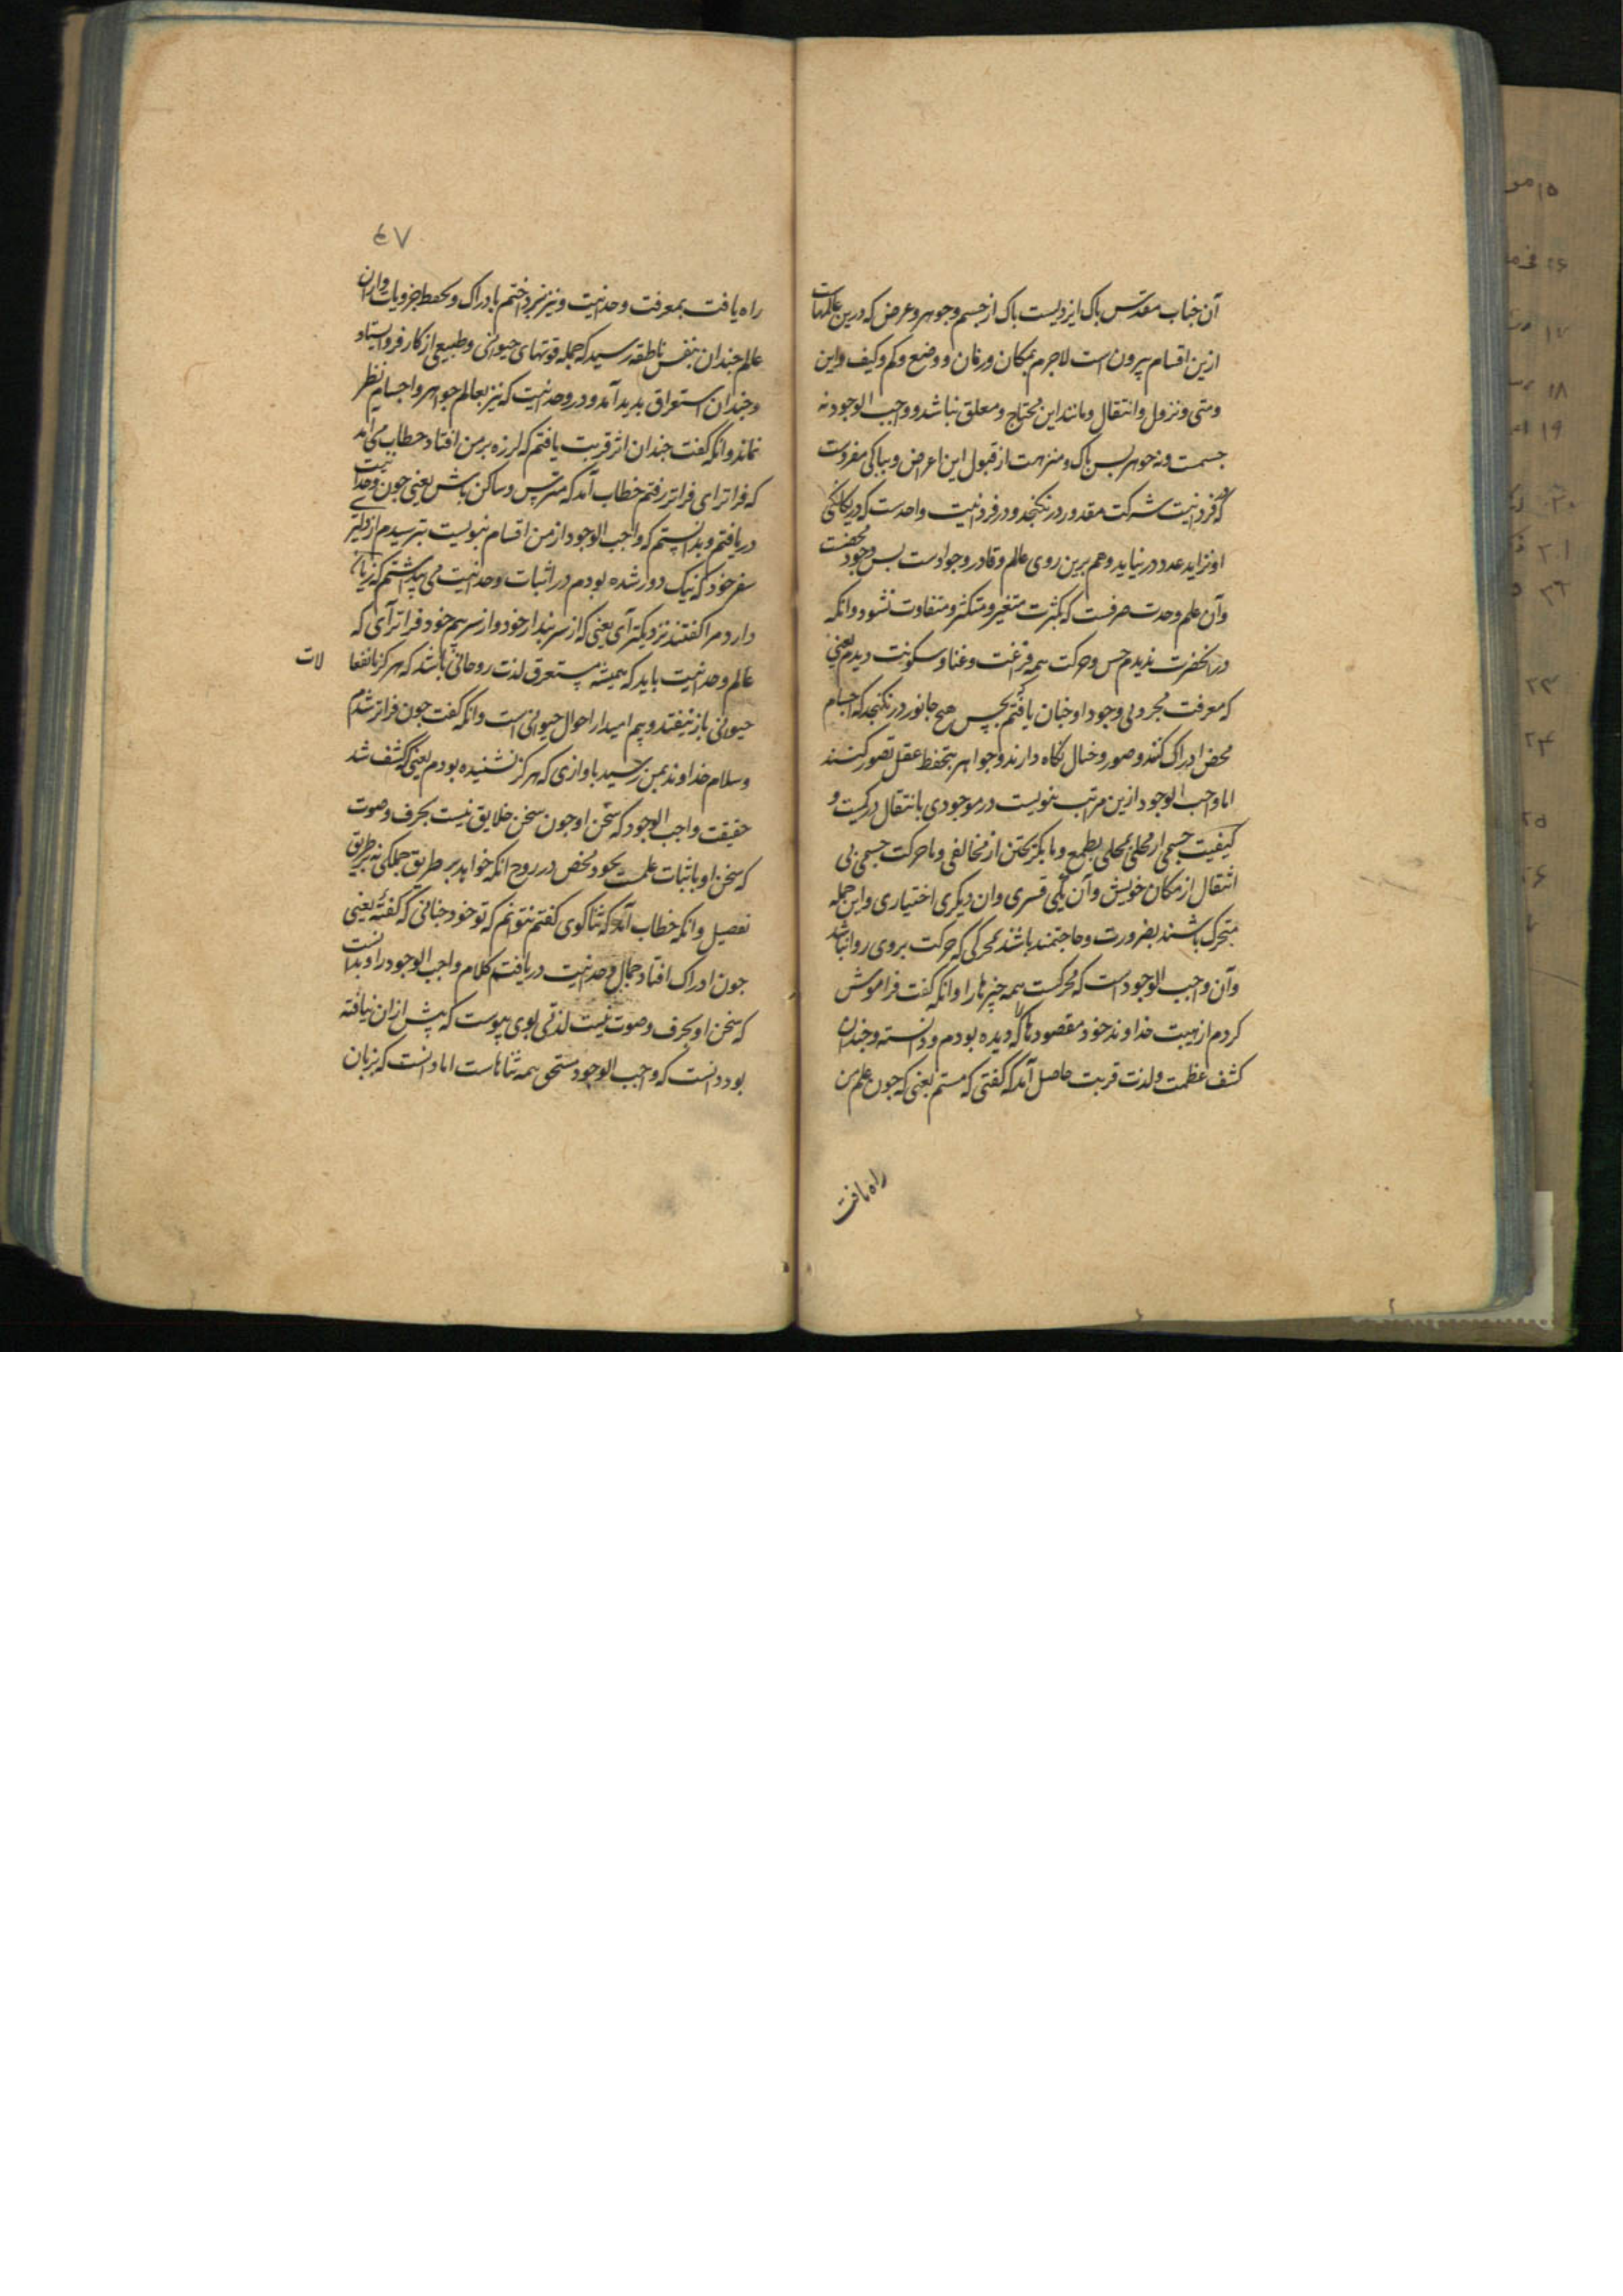 آن جناب مقدس باک ایزدیست باک از جسم و جوهر و عرض که درین عالمهاست
ازین اقسام بیرون است لاجرم بمکان و زمان و وضع و کم و کیف و این
و متی و نزول و انتقال و مانند این محتاج و معلق نباشد و واجب الوجود نه
جسمت و نه جوهر بس باک و منزهت از قبول این اعراض و بباکی مفردست
که در فردانیت شرکت مقدور در نکنجد و در فردانیت واحدست که در یکانکی
او تزاید عدد در نیاید و هم برین روی عالم و قادر و جوادست بس وجود محضت
و آن علم وحدت صرفست که بکثرت متغیر و متکثر و متفاوت نشود و انکه
در انحضرت ندیدم حس و حرکت همه فرغت و غنا و سکونت دیدم یعنی
که معرفت مجردیی وجود او جنان یافتم که بحس هیچ جانور در نکنجد که اجسام
محض ادراک کنند و صور و خیال نکاه دارند و جواهر بتحفظ عقل تصور کنند
اما واجب الوجود ازین مراتب بنویست در موجودی با انتقال در کمیت و
کیفیت جسمی از محلی بمحلی بطمع و یا بکریختن از مخالفی و یا حرکت جسمی بی
انتقال از مکان خویش و آن یکی قسری و ان دیکری اختیاری و این جمله
متحرک باشند بضرورت و حاجتمند باشند بمحرکی که حرکت بر وی روا نباشد
و آن واجب الوجود است که محرکست همه جیزها را و انکه کفت فراموش
کردم از هیبت خداوند خود مقصودها که دیده بودم و دانسته و جندان
کشف عظمت و لذت قربت حاصل آمد که کفتی که مستم یعنی که جون علم من
راه یافت
٤٧
راه یافت بمعرفت وحدانیت و نیز نبرداختم بادراک و بحفظ جزویات و از ان
عالم جندان بنفس ناطقه رسید که جمله قوتهای حیوانی و طبیعی از کار فرو ایستاد
و جندان استغراق بدید آمد در وحدانیت که نیز بعالم جواهر و اجسام نظر
نماند و انکه کفت جندان اثر قربت یافتم که لرزه بر من افتاد و خطاب می آمد
که فراتر ای فراتر رفتم خطاب آمد که مترس و ساکن باش یعنی جون وحدانیت
دریافتم و بدانستم که واجب الوجود از من اقسام نبویست بترسیدم از دلیری
سفر خود که نیک دور شده بودم در اثبات وحدانیت می بنداشتم که زیان
دارد مرا کفتند نزدیکتر آی یعنی که از سر بندار خود و از سر بیم خود فراتر آی که
عالم وحدانیت باید که همیشه مستغرق لذت روحانی باشد که هرکز بانفعا لات
حیوانی باز نیفتد و بیم امید از احوال حیوانی است و انکه کفت جون فراتر شدم
و سلام خداوند بمن رسید باوازی که هرکز نشنیده بودم یعنی که کشف شد
حقیقت واجب الوجود که سخن او جون سخن خلایق نیست بحرف و صوت
که سخن او باثبات علمست بخود محض در روح انکه خواهد بر طریق جملکی نه بر طریق
تفصیل و انکه خطاب آمد که ثنا کوی کفتم نتوانم که تو خود جنانی که کفتهٔ یعنی
جون ادراک افتاد جمال وحدانیت دریافت کلام واجب الوجود را و بدانست
که سخن او بحرف و صوت نیست لذتی بوی بیوست که بیش از ان نیافته
بود دانست که واجب الوجود مستحق همه ثناهاست اما دانست که بزبان